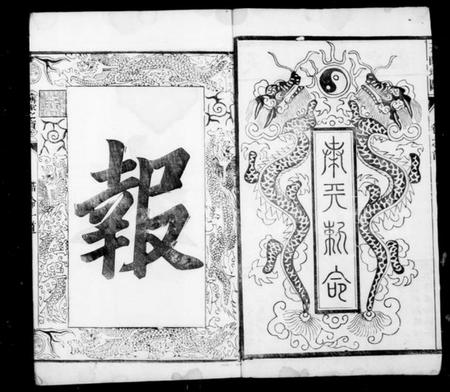 奉天敕命
報